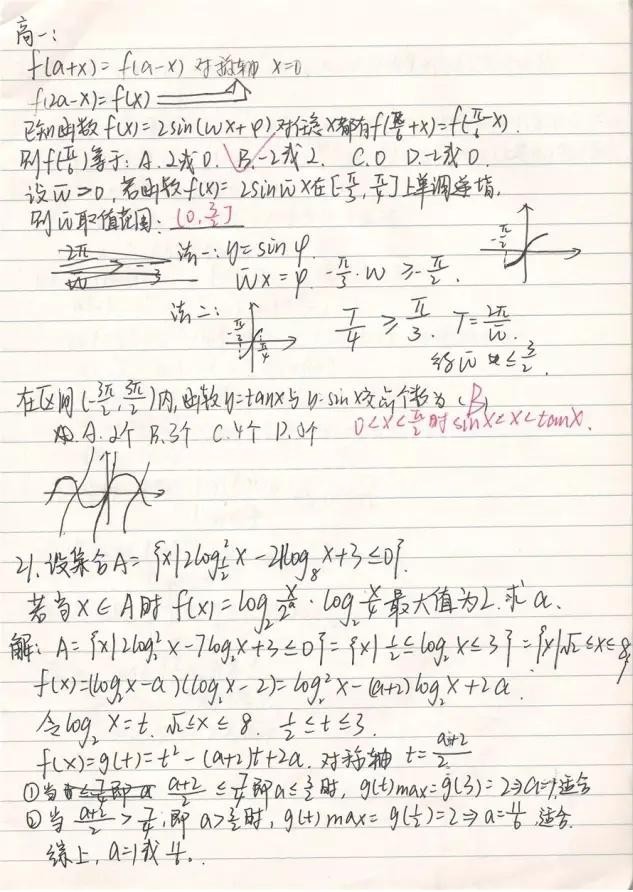 高一:
f(a+x)=f(a-x) 对称轴 x=0
f(2a-x)=f(x)
已知函数 f(x)=2sin(wx+φ)对任意x都有f(π/6+x)=f(π/6-x).
则f(π/6)等于: A.2或0. B.-2或2. C.0 D.-2或0.
设w>0,若函数f(x)=2sinwx在[-π/3,π/4]上单调递增,
则w取值范围: (0,3/2]
2π/w 法一: y=sinφ.
wx=φ. -π/3·w ≥ -π/2. -π/2
法二: -π/3 π/4 T/4 ≥ π/3. T=2π/w.
得w ≤ 3/2.
在区间(-3π/2,3π/2)内,函数y=tanx与y=sinx交点个数为(B)
A.2个 B.3个 C.4个 D.5个 0<x<π/2时sinx<x<tanx.
21.设集合A={x|2log²_{1/2}x-21log_8x+3≤0}.
若当x∈A时 f(x)=log_2 x/2^a·log_2 x/4最大值为2.求a.
解: A={x|2log_2²x-7log_2x+3≤0}={x|1/2≤log_2x≤3}={x|√2≤x≤8}
f(x)=(log_2x-a)(log_2x-2)=log_2²x-(a+2)log_2x+2a.
令log_2x=t. √2≤x≤8. 1/2≤t≤3.
f(x)=g(t)=t²-(a+2)t+2a. 对称轴 t=a+2/2
①当 a+2/2≤7/4即a≤3/2时, g(t)max=g(3)=2⇒a=1适合
②当 a+2/2>7/4,即a>3/2时, g(t)max=g(1/2)=2⇒a=11/6 适合.
综上, a=1或11/6.